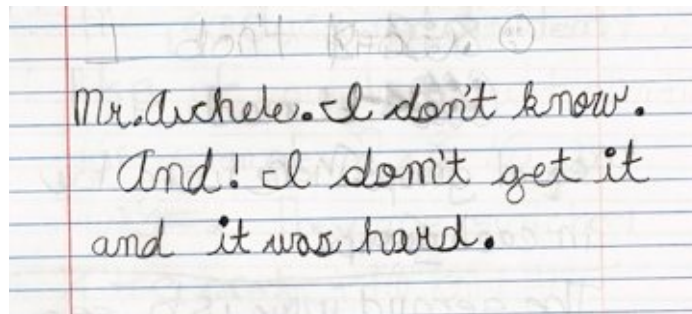 Mr. Aichele. I don't know.
And! I don't get it
and it was hard.